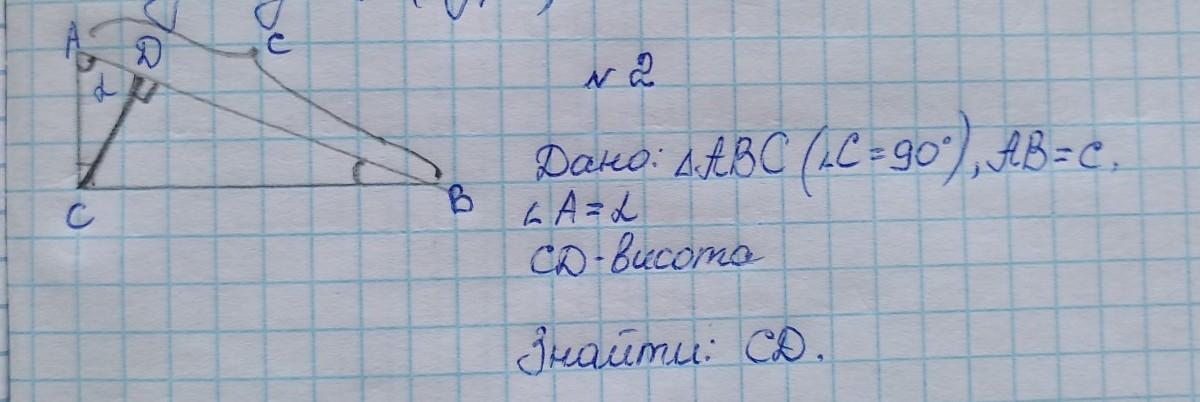 A
D
C
α
C
B
№2
Дано: ΔABC (∠C=90°), AB=c,
∠A=α
CD-висота
Знайти: CD.